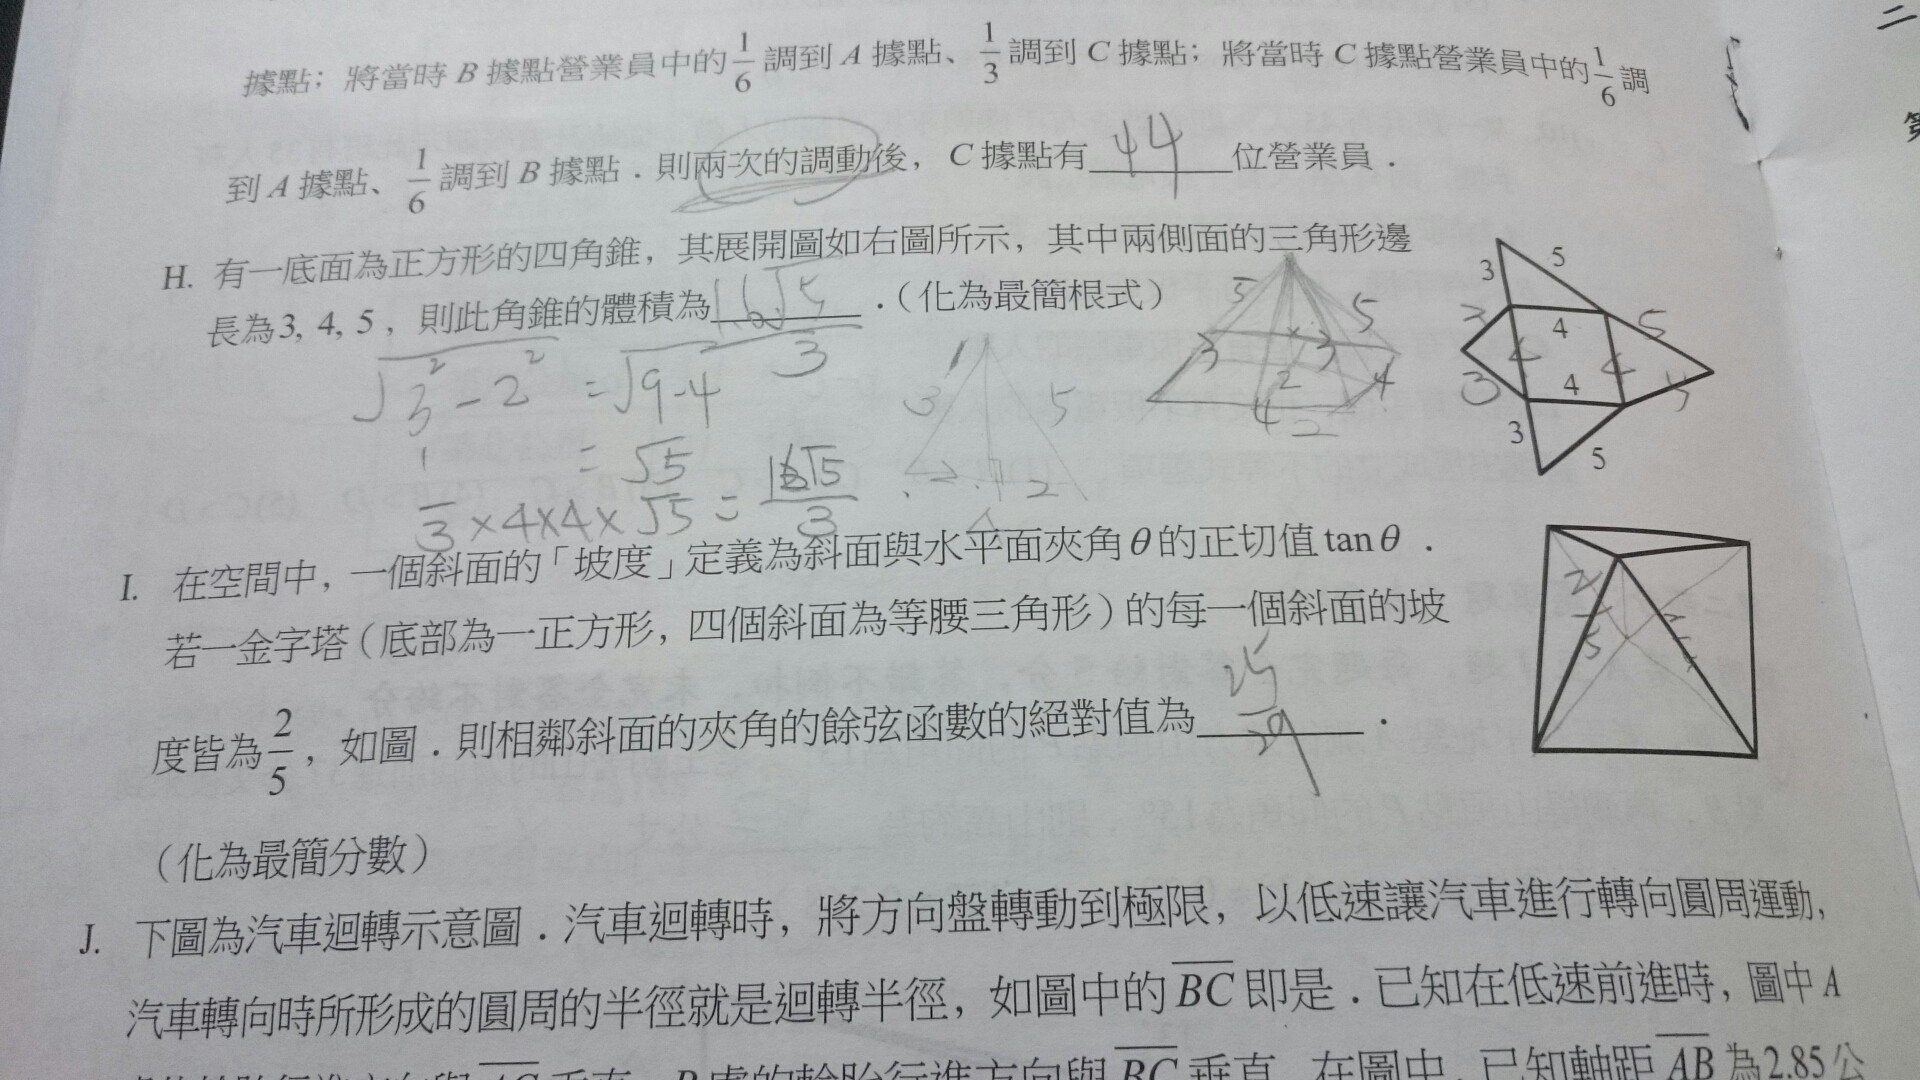 據點；將當時 B 據點營業員中的 1/6 調到 A 據點、1/3 調到 C 據點；將當時 C 據點營業員中的 1/6 調
到 A 據點、1/6 調到 B 據點．則兩次的調動後，C 據點有 44 位營業員．
H. 有一底面為正方形的四角錐，其展開圖如右圖所示，其中兩側面的三角形邊
長為3, 4, 5，則此角錐的體積為 16√5/3 ．（化為最簡根式）
√(3²-2²) = √(9-4)
= √5
1/3 ×4×4×√5 = 16√5/3
3 5
4
4
3 5
I. 在空間中，一個斜面的「坡度」定義為斜面與水平面夾角θ的正切值 tanθ．
若一金字塔（底部為一正方形，四個斜面為等腰三角形）的每一個斜面的坡
度皆為 2/5，如圖．則相鄰斜面的夾角的餘弦函數的絕對值為 25/29 ．
（化為最簡分數）
J. 下圖為汽車迴轉示意圖．汽車迴轉時，將方向盤轉動到極限，以低速讓汽車進行轉向圓周運動，
汽車轉向時所形成的圓周的半徑就是迴轉半徑，如圖中的 BC 即是．已知在低速前進時，圖中 A
處的輪胎行進方向與 AC 垂直，B 處的輪胎行進方向與 BC 垂直．在圖中，已知軸距 AB 為2.85公
二